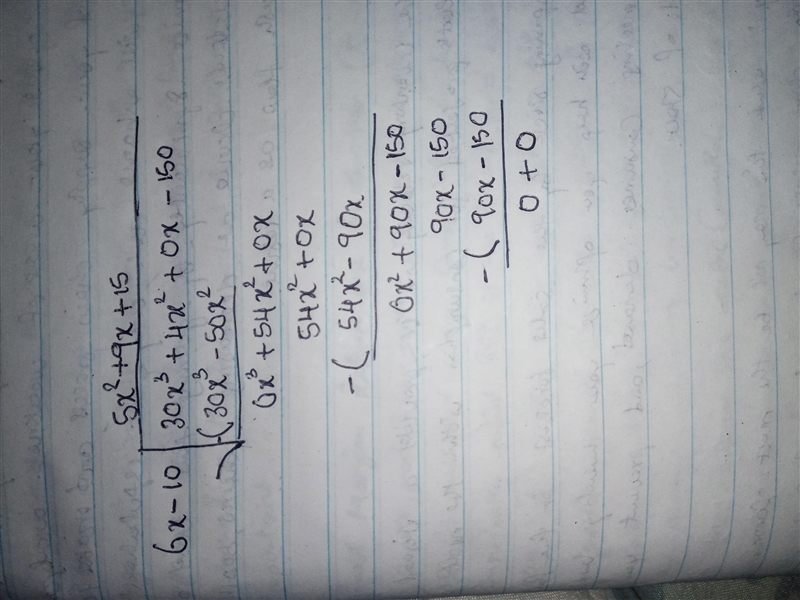 5x² + 9x + 15
6x - 10 | 30x³ + 4x² + 0x - 150
-(30x³ - 50x²
0x³ + 54x² + 0x
54x² + 0x
-( 54x² - 90x
0x² + 90x - 150
90x - 150
-( 90x - 150
0 + 0